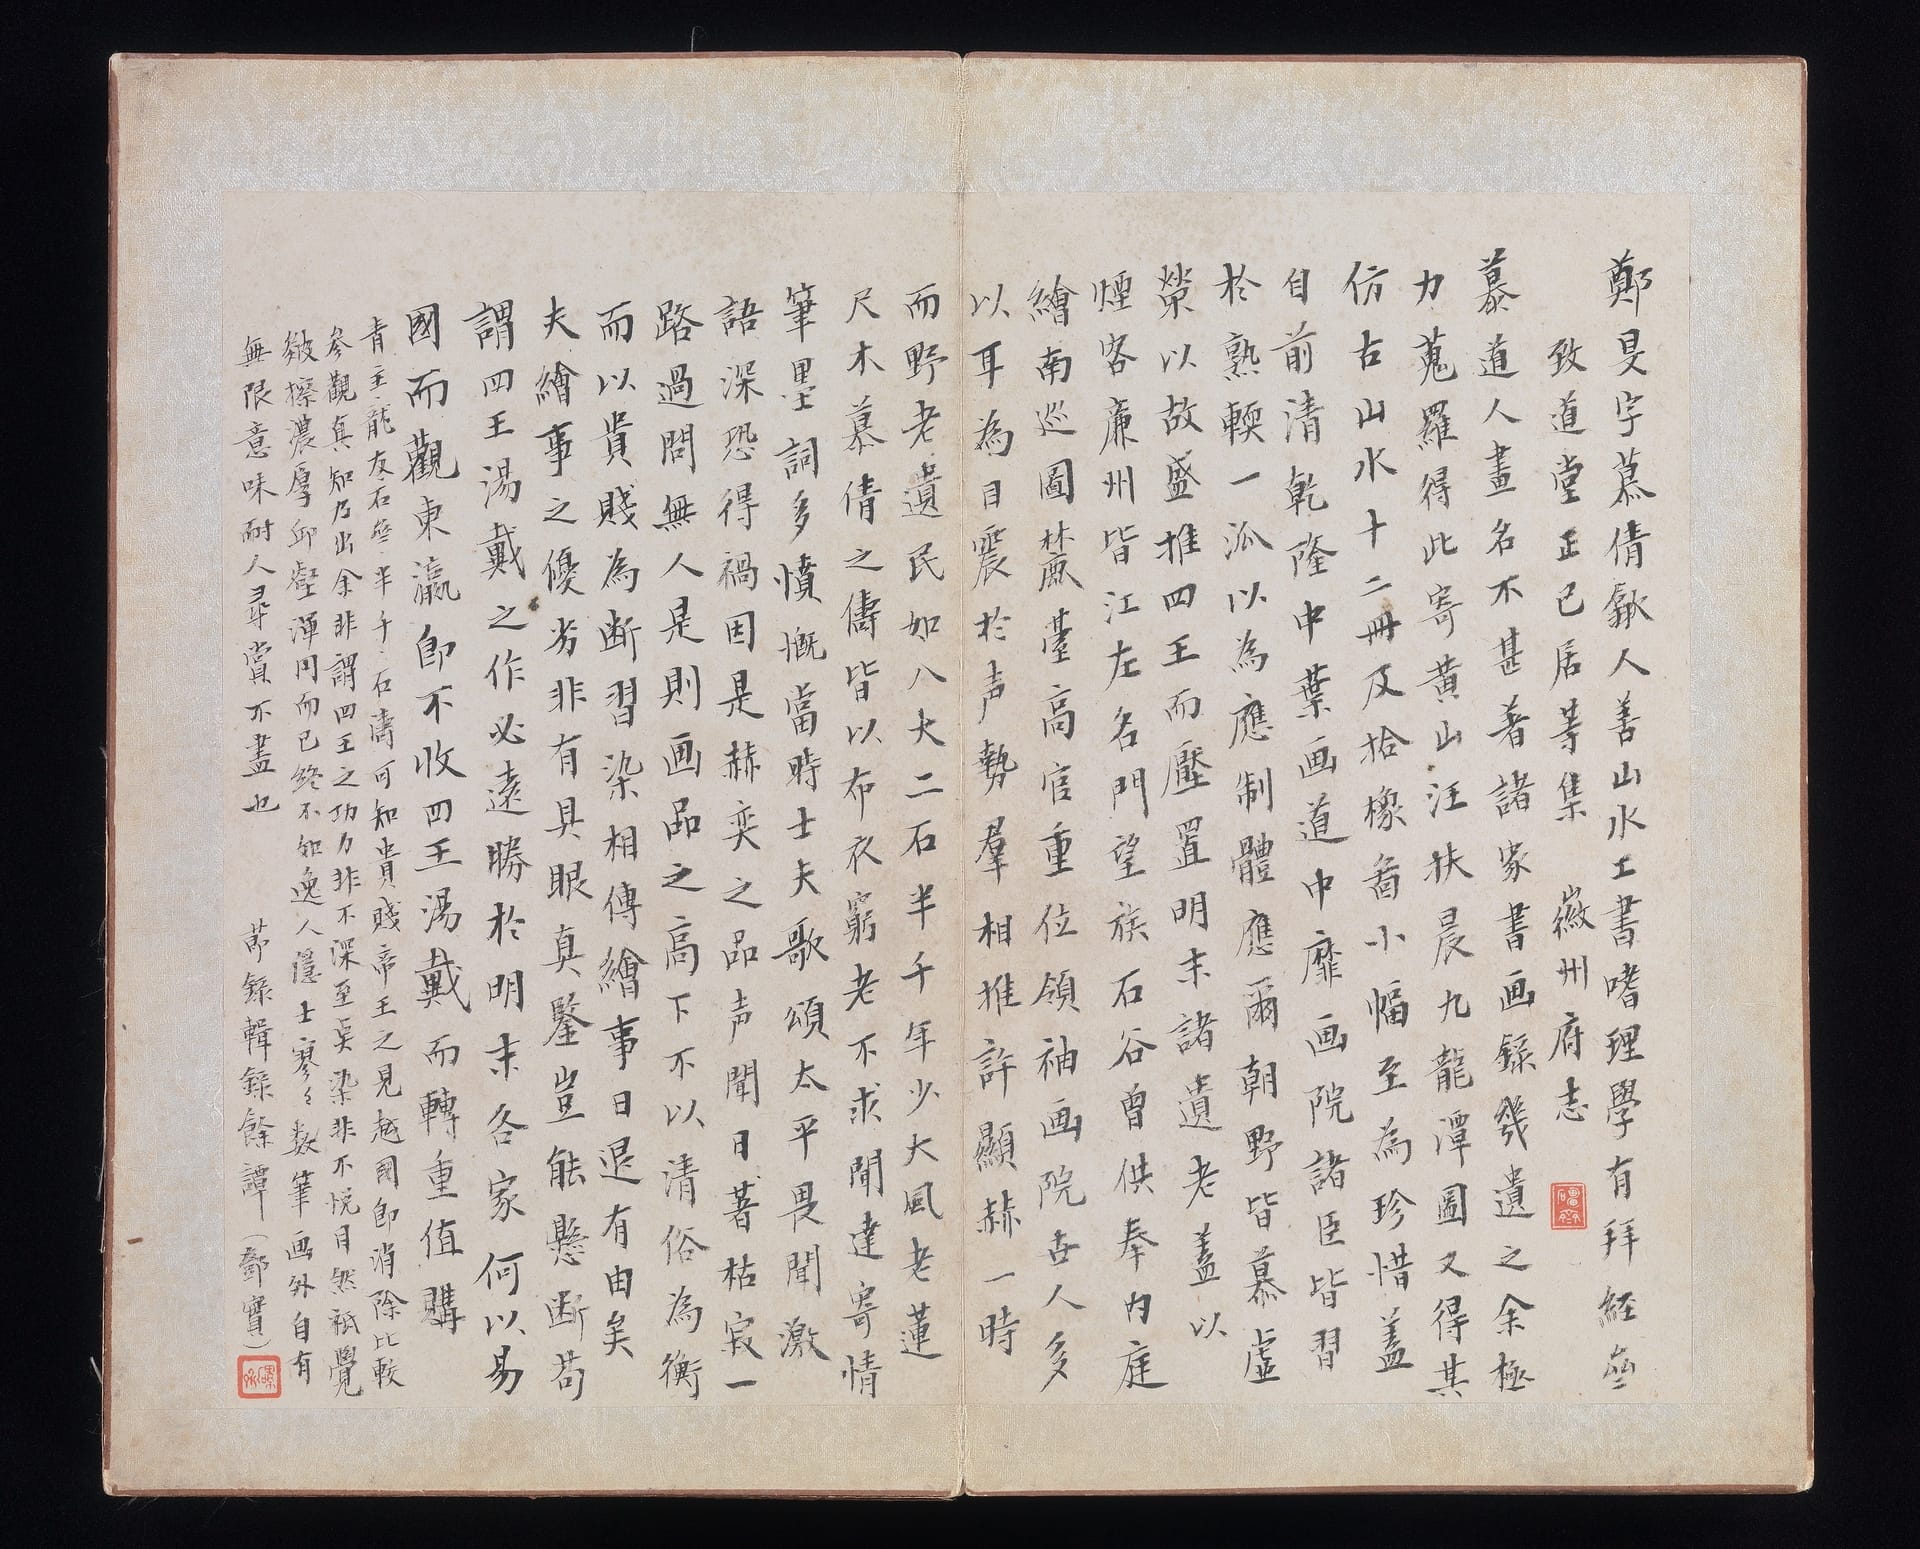 鄭旻字慕倩歙人善山水工書嗜理學有拜經齋
致道堂正己居等集　徽州府志
慕道人畫名不甚著諸家書画錄幾遺之余極
力蒐羅得此寄黃山汪扶晨九龍潭圖又得其
仿古山水十二冊及拾橡圖小幅至為珍惜蓋
自前清乾隆中葉画道中靡画院諸臣皆習
於熟輭一派以為應制體應爾朝野皆慕虛
榮以故盛推四王而壓置明末諸遺老蓋以
煙客廉州皆江左名門望族石谷曾供奉內庭
繪南巡圖麓臺高官重位領袖画院世人多
以耳為目震於声勢羣相推許顯赫一時
而野老遺民如八大二石半千年少大風老蓮
尺木慕倩之儔皆以布衣窮老不求聞達寄情
筆墨詞多憤慨當時士夫歌頌太平畏聞激
語深恐得禍因是赫奕之品声聞日著枯寂一
路過問無人是則画品之高下不以清俗為衡
而以貴賤為断習染相傳繪事日退有由矣
夫繪事之優劣非有具眼真鑒豈能懸断苟
謂四王湯戴之作必遠勝於明末各家何以易
國而觀東瀛即不收四王湯戴而轉重值購
青主龍友石谿半千石濤可知貴賤帝王之見越國即消除比較
參觀真知乃出余非謂四王之功力非不深至真染非不悅目然祇覺
皴擦濃厚邱壑渾同而已終不如逸人隱士寥々數筆画外自有
無限意味耐人尋賞不盡也　茆錄輯錄餘譚（鄧實）